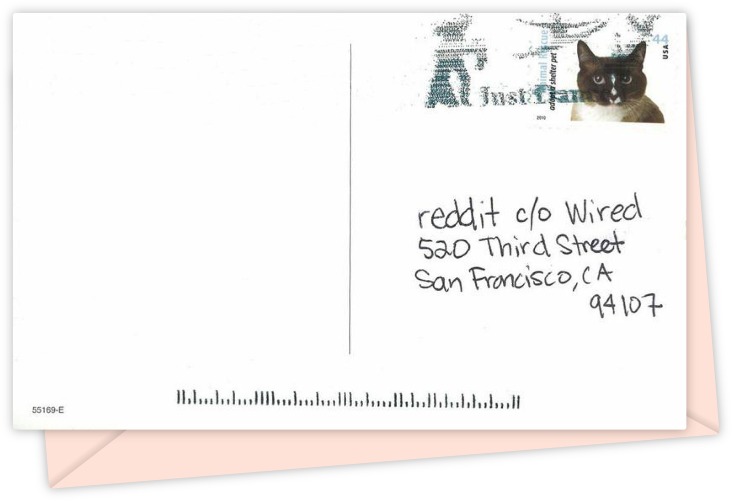 44
USA
Animal Rescue
adopt a shelter pet
2010
Just
reddit c/o Wired
520 Third Street
San Francisco, CA
94107
55169-E